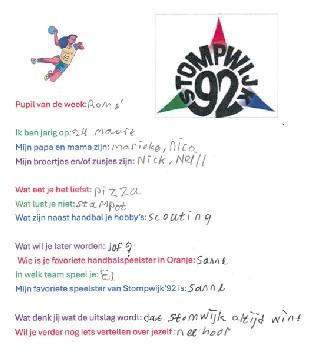 STOMPWIJK
92
Pupil van de week: Romé
Ik ben jarig op: 24 maart
Mijn papa en mama zijn: marieke, Rico
Mijn broertjes en/of zusjes zijn: Nick, Nell
Wat eet je het liefst: pizza
Wat lust je niet: stampot
Wat zijn naast handbal je hobby's: scouting
Wat wil je later worden: jufg
Wie is je favoriete handbalspeelster in Oranje: Sanne
In welk team speel je: E1
Mijn favoriete speelster van Stompwijk'92 is: sanne
Wat denk jij wat de uitslag wordt: dat stomwijk altijd wint
Wil je verder nog iets vertellen over jezelf: nee hoor